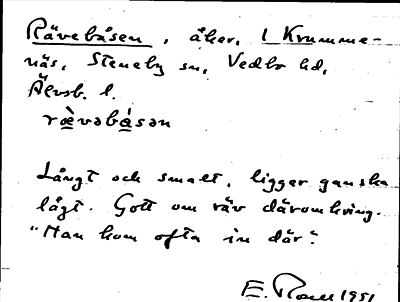 Rävebåsen, åker, 1 Krumme-
näs, Steneby sn, Vedbo hd,
Älvsb. l.
rævəbåsən
Långt och smalt, ligger ganska
lågt. Gott om räv däromkring.
"Man kom ofta in där."
E. 1951